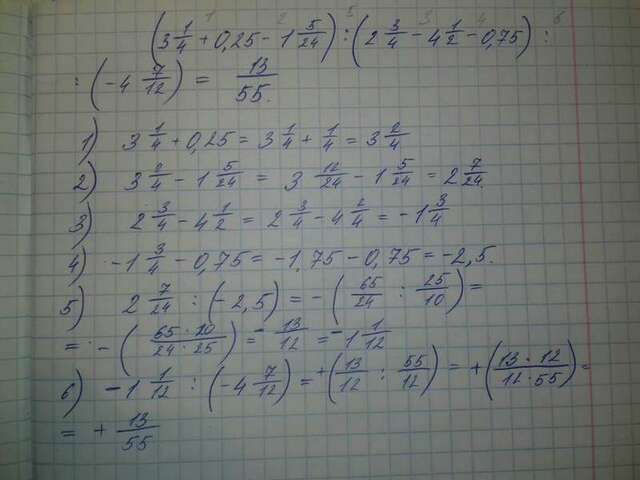 (3 1/4 + 0,25 - 1 5/24) : (2 3/4 - 4 1/2 - 0,75) :
: (-4 7/12) = 13/55.
1) 3 1/4 + 0,25 = 3 1/4 + 1/4 = 3 2/4
2) 3 2/4 - 1 5/24 = 3 12/24 - 1 5/24 = 2 7/24.
3) 2 3/4 - 4 1/2 = 2 3/4 - 4 2/4 = -1 3/4
4) -1 3/4 - 0,75 = -1,75 - 0,75 = -2,5.
5) 2 7/24 : (-2,5) = -(55/24 : 25/10) =
= -(65·10/24·25) = -13/12 = -1 1/12
6) -1 1/12 : (-4 7/12) = +(13/12 : 55/12) = +(13·12/12·55) =
= + 13/55